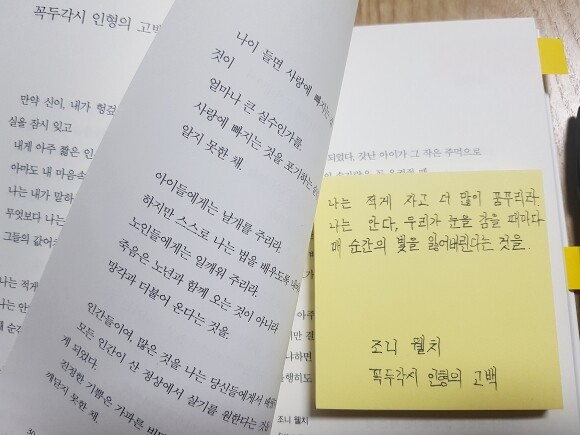 꼭두각시 인형의 고백
만약 신이, 내가 헝겊
실을 잠시 잊고
내게 아주 짧은 인
아마도 내 마음속
나는 내가 말하
무엇보다 나는
그들의 값어
나는 적게
나는 안다
매 순간
나이 들면 사랑에 빠지는
것이
얼마나 큰 실수인가를.
사랑에 빠지는 것을 포기하는 순
알지 못한 채.
아이들에게는 날개를 주리라.
하지만 스스로 나는 법을 배우도록
노인들에게는 일깨워 주리라.
죽음은 노년과 함께 오는 것이 아니라
망각과 더불어 온다는 것을.
인간들이여, 많은 것을 나는 당신들에게서
게 되었다.
모든 인간이 산 정상에서 살기를 원한다는
진정한 기쁨은 가파른
깨닫지 못한 채.
되었다. 갓난 아이가 그 작은 주먹으로
조니 웰치
나는 적게 자고 더 많이 꿈꾸리라.
나는 안다, 우리가 눈을 감을 때마다
매 순간의 빛을 잃어버린다는 것을.
조니 웰치
꼭두각시 인형의 고백